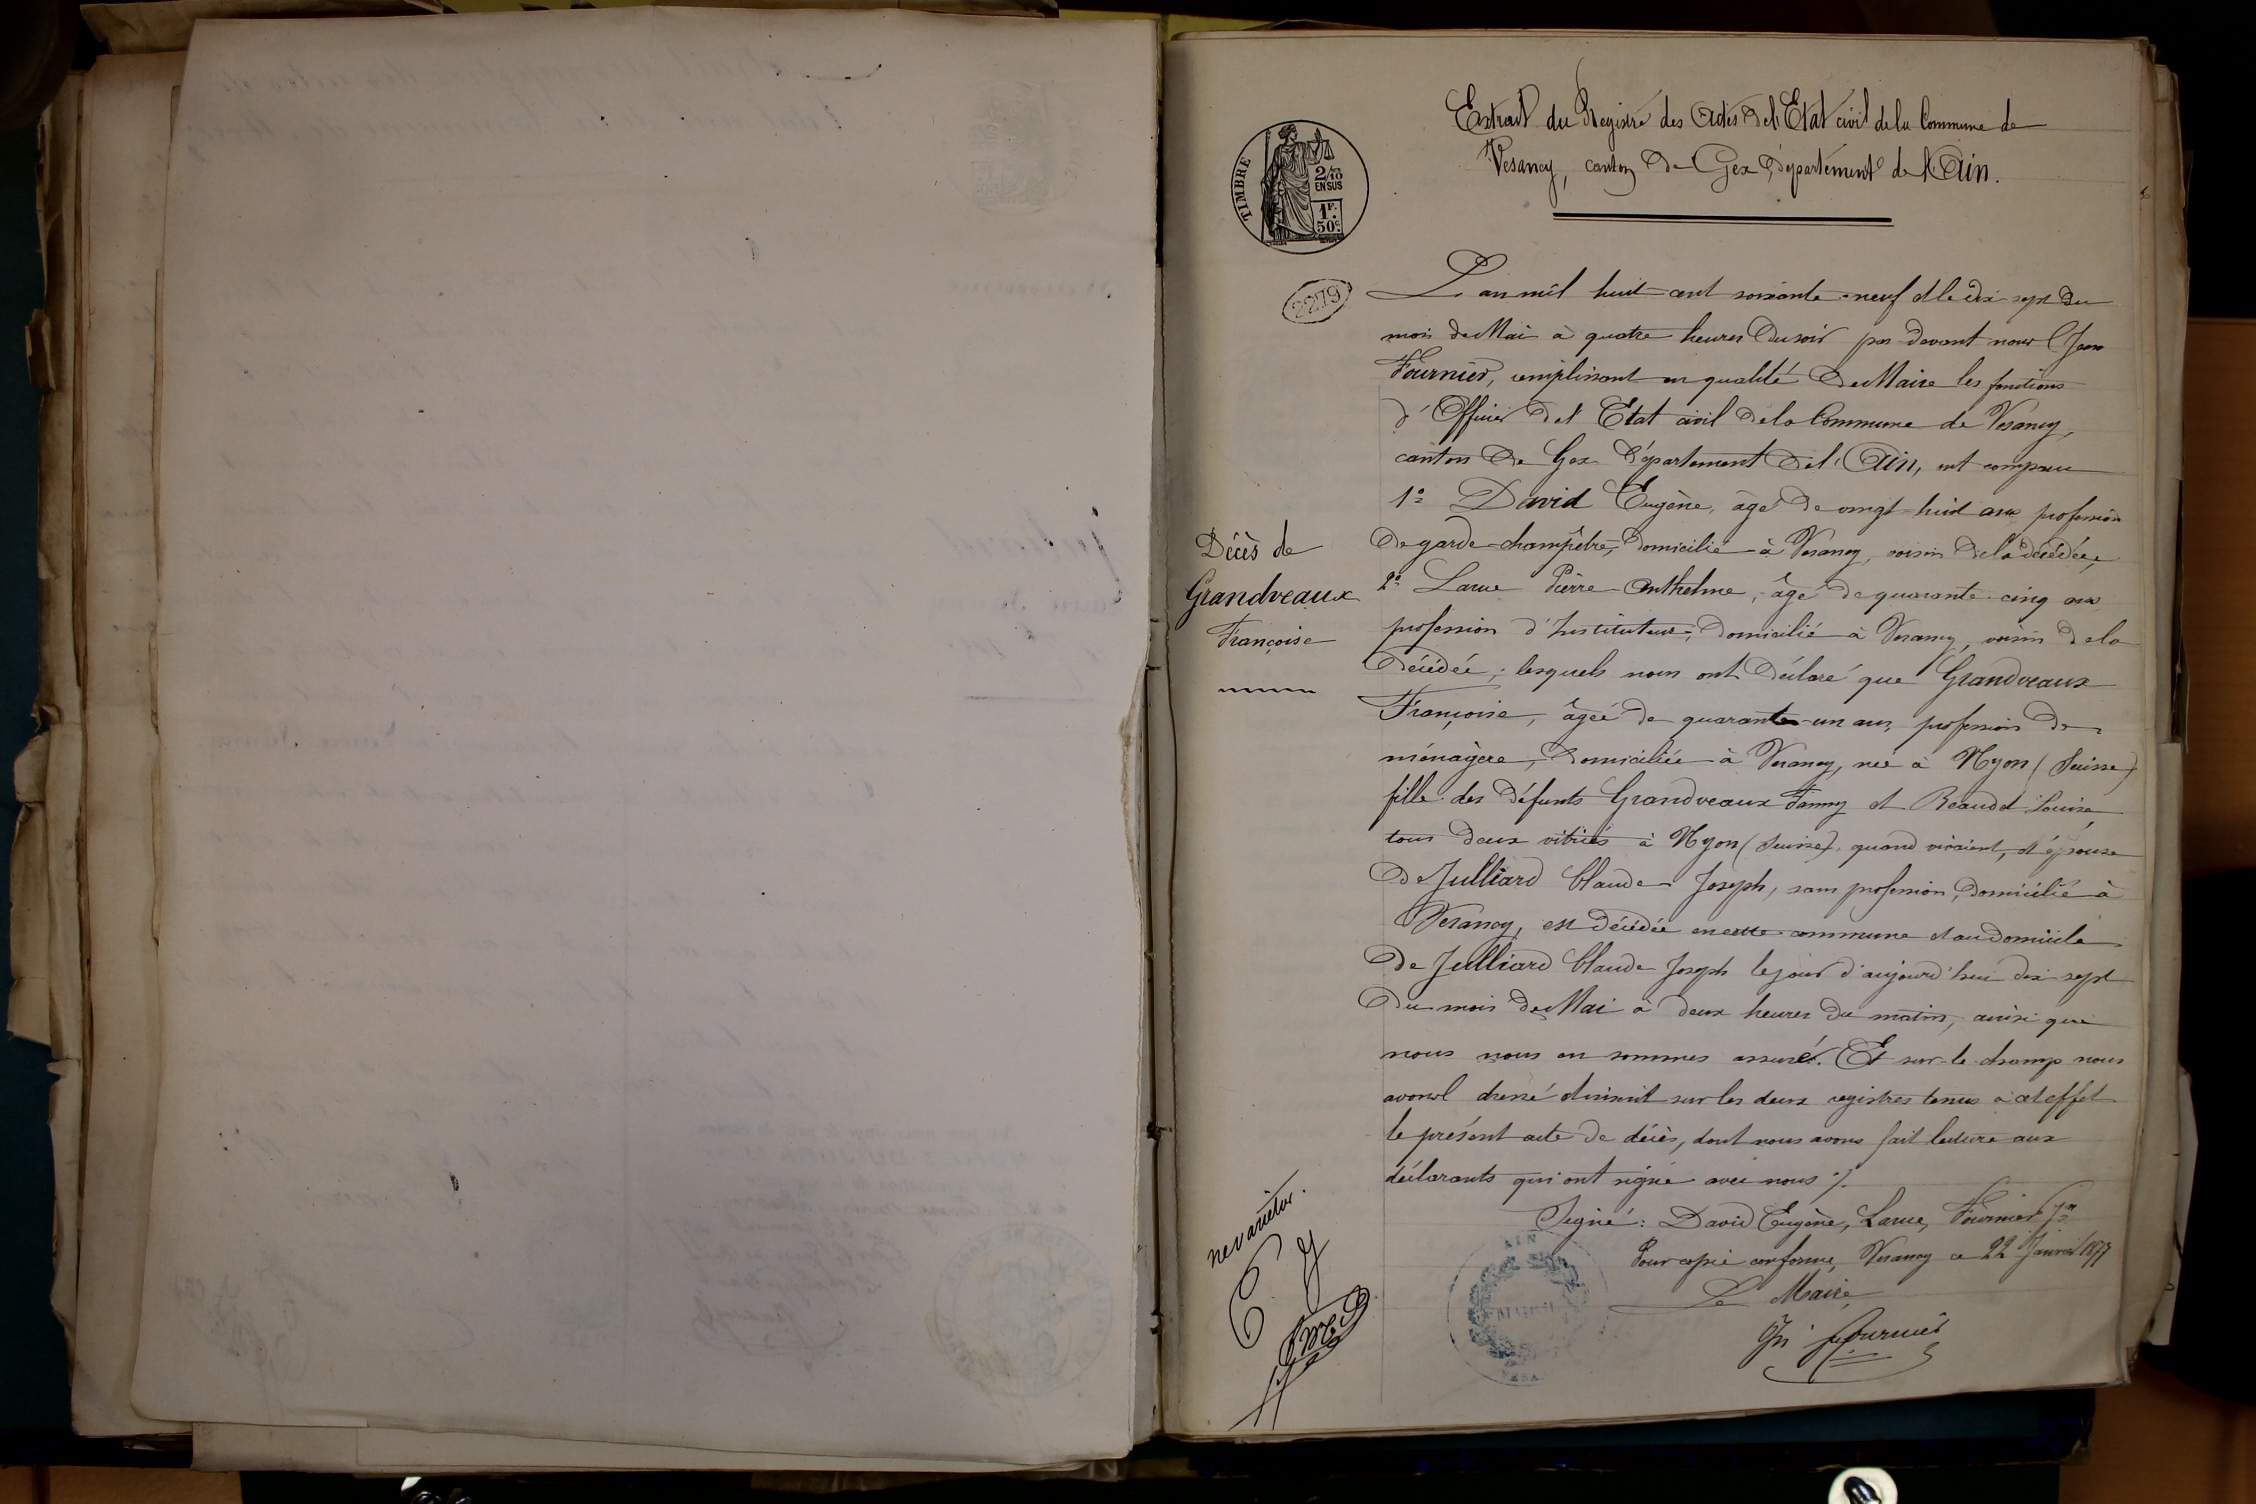 Extrait du Registre des Actes de l'Etat civil de la Commune de
Vesancy, canton de Gex, département de l'Ain.
TIMBRE
2/10
EN SUS
1F.
50c
2279
L'an mil huit cent soixante-neuf et le dix-sept du
mois de Mai à quatre heures du soir par devant nous Jean
Fournier, remplissant en qualité de Maire les fonctions
d'Officier de l'Etat civil de la Commune de Vesancy,
canton de Gex département de l'Ain, ont comparu
1o David Eugène, âgé de vingt-huit ans profession
de garde-champêtre, domicilié à Vesancy, voisin de la décédée,
2o Larue Pierre Anthelme, âgé de quarante-cinq ans
profession d'Instituteur, domicilié à Vesancy, voisin de la
décédée; lesquels nous ont déclaré que Grandveaux
Françoise, âgée de quarante-un ans, profession de
ménagère, domiciliée à Vesancy, née à Nyon (Suisse)
fille des défunts Grandveaux Fanny et Beaudet Louise,
tous deux à Nyon (Suisse), quand vivaient, et épouse
de Julliard Claude-Joseph, sans profession, domicilié à
Vesancy, est décédée en cette commune et au domicile
de Julliard Claude Joseph le jour d'aujourd'hui dix-sept
du mois de Mai à deux heures du matin, ainsi que
nous nous en sommes assuré. Et sur-le-champ nous
avons dressé et inscrit sur les deux registres tenus à cet effet
le présent acte de décès, dont nous avons fait lecture aux
déclarants qui ont signé avec nous ./.
Signé: David Eugène, Larue, Fournier Jn
Pour copie conforme, Vesancy ce 22 Janvier 1877
Le Maire,
Jn Fournier
Décès de
Grandveaux
Françoise
ne varietur.
AIN
MAIRIE